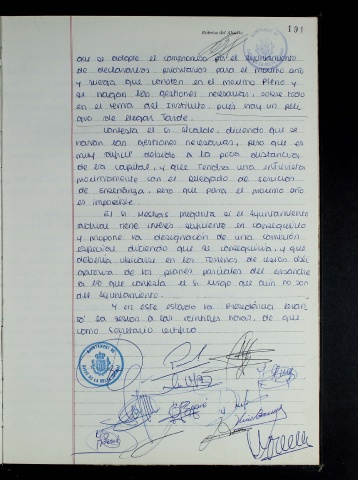 Rúbrica del Alcalde
191
que se adopte el compromiso por el Ayuntamiento
de declararlos prioritarios para el próximo año
y ruega que consten en el próximo Pleno y
se hagan las gestiones necesarias, sobre todo
en el tema del Instituto, pues hay un peli
gro de llegar tarde.
Contesta el Sr. Alcalde, diciendo que se
harán las gestiones necesarias, pero que es
muy difícil debido a la poca distancia
de la capital, y que tendrá una entrevista
próximamente con el Delegado de Servicios
de Enseñanza, pero que para el próximo año
es imposible.
El Sr. pregunta si el Ayuntamiento
actual tiene interés suficiente en conseguirlo
y propone la designación de una comisión
especial diciendo que se conseguiría, y que
debería ubicarse en los terrenos de cesión
de los planes parciales del
a lo que contesta el Sr. que aún no son
del Ayuntamiento.
Y en este estado la Presidencia levan
tó la sesión a las veintiuna horas, de que
como Secretario certifico.